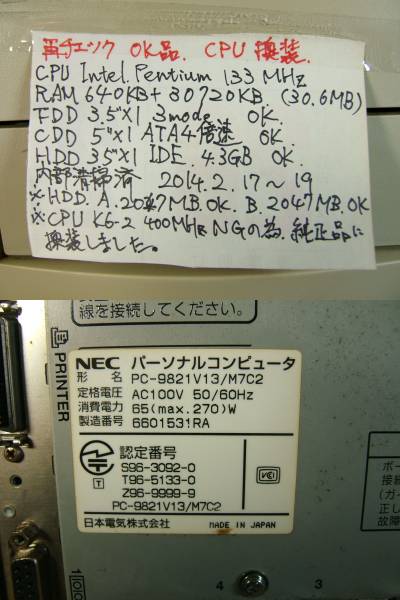 再チェック OK品. CPU 換装.
CPU Intel. Pentium 133 MHz
RAM 640KB+30720KB. (30.6MB)
FDD 3.5"×1 3mode OK.
CDD 5"×1 ATA4倍速 OK
HDD 3.5"×1 IDE. 4.3GB OK.
内部清掃済 2014.2.17～19
※HDD. A.2047MB.OK. B.2047MB.OK
※CPU K6-2 400MHz NGの為、純正品に
換装しました。
線を接続してください。
PRINTER
NEC パーソナルコンピュータ
形 名 PC-9821V13/M7C2
定格電圧 AC100V 50/60Hz
消費電力 65(max.270)W
製造番号 6601531RA
認定番号
S96-3092-0
T96-5133-0
Z96-9999-9
PC-9821V13/M7C2
T
VCI
日本電気株式会社 MADE IN JAPAN
ボー
接続
(ガー
正し
故障
4 3